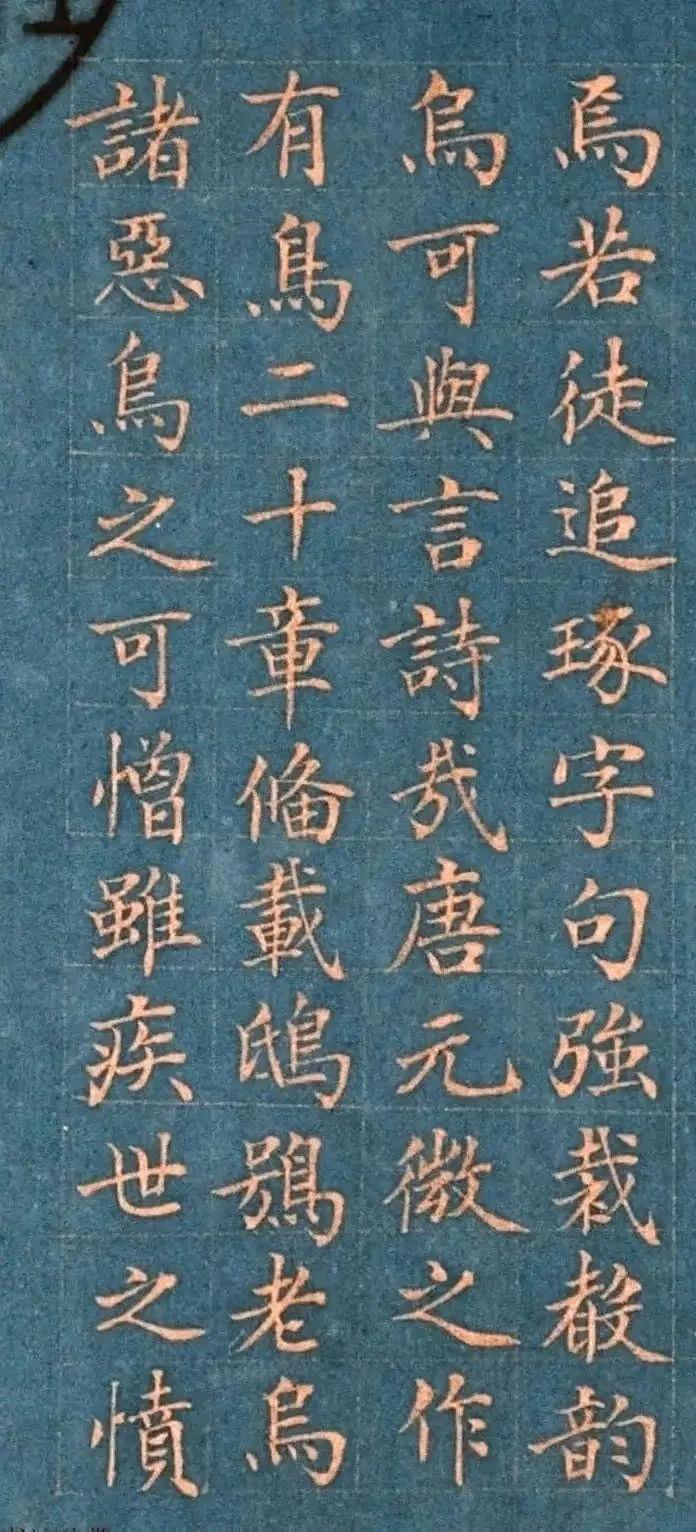 焉若徒追琢字句強裁聲韵
烏可與言詩哉唐元微之作
有鳥二十章俻載鴟鴞老烏
諸惡鳥之可憎雖疾世之憤